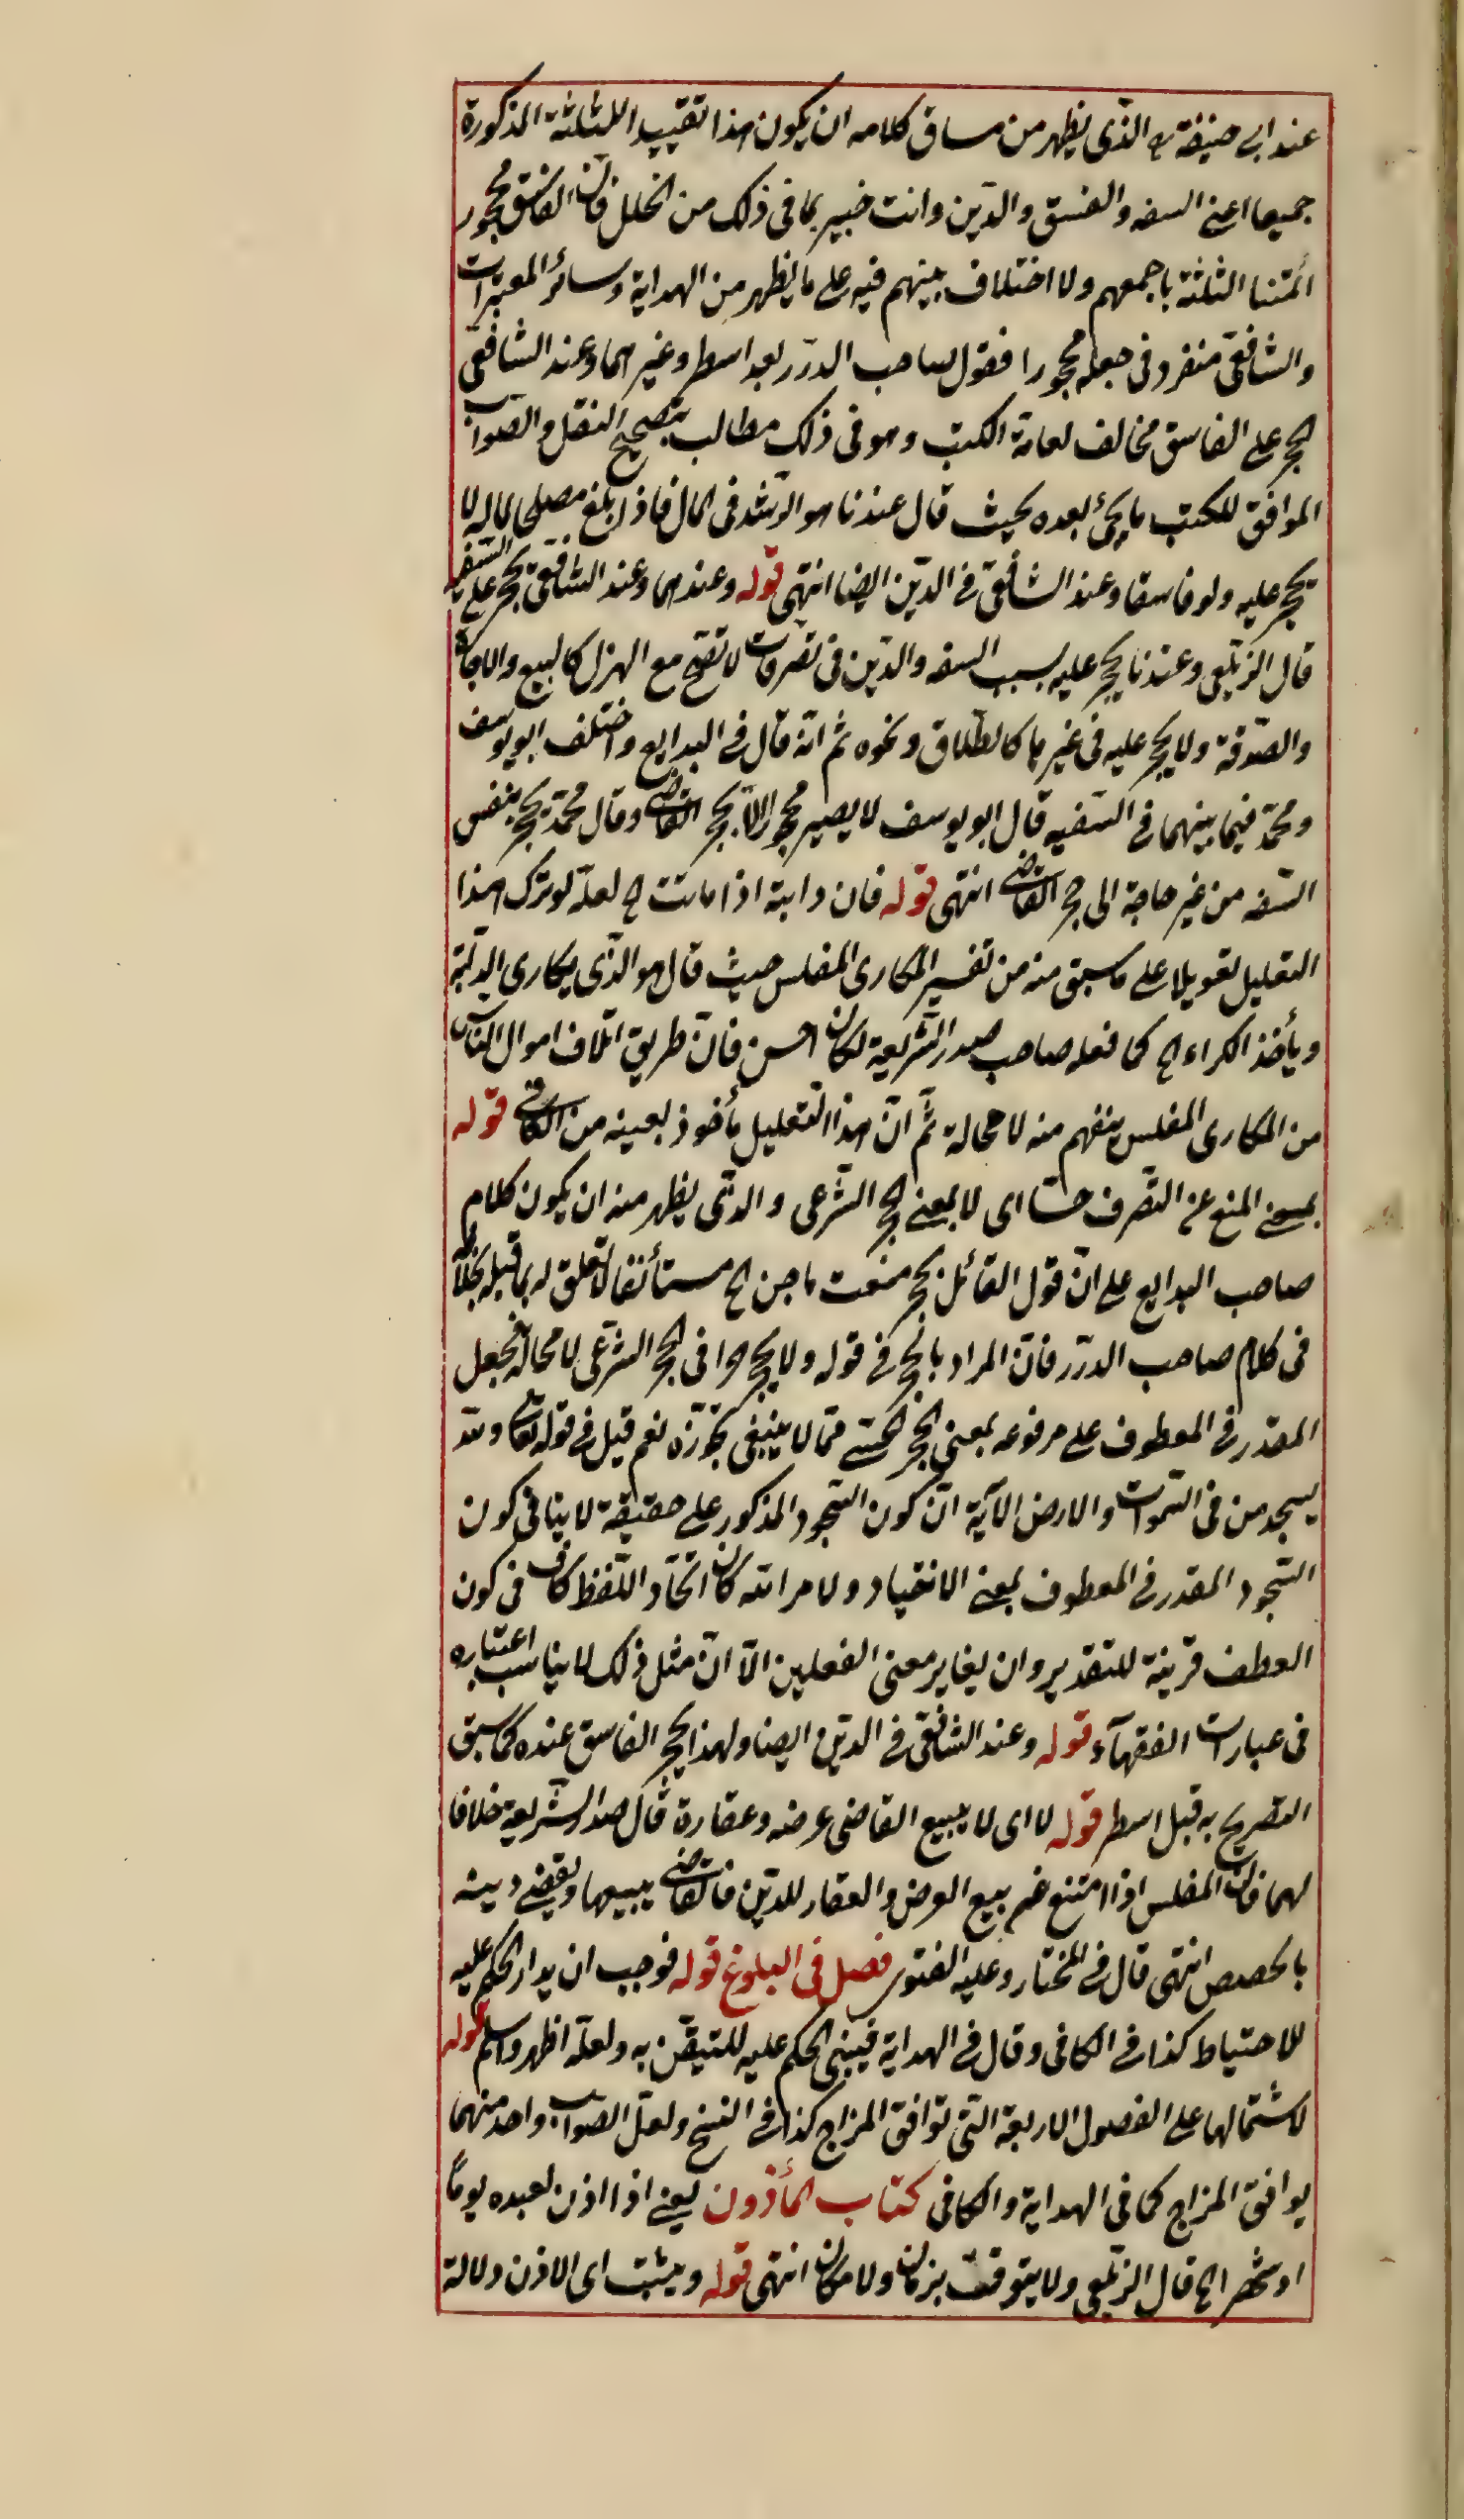 عند ابى حنيفة رح الذى يظهر من مساق كلامه ان يكون هذا تقييد اللثلثة المذكورة
جميعا اعنى السفه والفسق والدين وانت خبير بما فى ذلك من الخلل فان الفاسق محجور
ائمتنا الثلثة باجمعهم ولا اختلاف بينهم فيه على ما يظهر من الهداية وسائر المعتبرات
والشافعى منفرد فى جعله محجورا فقول صاحب الدرر بعد اسطر وغيرهما وعند الشافعى
الحجر على الفاسق مخالف لعامة الكتب وهو فى ذلك مطالب بتصحيح النقل والصواب
الموافق للكتب ما يجئ بعده بحيث قال عندنا هو الرشد فى المال فاذا بلغ مصلحا لماله لا
يحجر عليه ولو فاسقا وعند الشافعى فى الدين ايضا انتهى قوله وعندهما وعند الشافعى يحجر على السفيه
قال الزيلعى وعندنا يحجر عليه بسبب السفه والدين فى تصرفات لا تصح مع الهزل كالبيع والاجارة
والصدقة ولا يحجر عليه فى غيرها كالطلاق ونحوه ثم انه قال فى البدايع واختلف ابو يوسف
ومحمد فيما بينهما فى السفيه قال ابو يوسف لا يصير محجورا الا بحجر القاضى وقال محمد يحجر بنفس
السفه من غير حاجة الى حجر القاضى انتهى قوله فان دابته اذا ماتت الخ لعله لو ترك هذا
التعليل تعويلا على ما سبق منه من تفسير المكارى المفلس حيث قال هو الذى يكارى الدابة
ويأخذ الكراء الخ كما فعله صاحب صدر الشريعة لكان احسن فان طريق اتلاف اموال الناس
من المكارى المفلس ينفهم منه لا محالة ثم ان هذا التعليل مأخوذ بعينه من الكافى قوله
بمعنى المنع عن التصرف حسا اى لا بمعنى الحجر الشرعى والذى يظهر منه ان يكون كلام
صاحب البدايع على ان قول القائل بحجر منعت ماجن الخ مستأنفا لا تعلق له بما قبله بخلاف
فى كلام صاحب الدرر فان المراد بالحجر فى قوله ولا يحجر حرا فى الحجر الشرعى لا محالة فجعل
المقدر فى المعطوف على مرفوعه بمعنى الحجر الحسى مما لا ينبغى تجوزه نعم قيل فى قوله تعالى ولله
يسجد من فى السموات والارض الآية ان كون السجود المذكور على حقيقة لا ينافى كون
السجود المقدر فى المعطوف بمعنى الانقياد ولامر الله كان اتحاد اللفظ كاف فى كون
العطف قرينة للتقدير وان يغاير معنى الفعلين الا ان مثل ذلك لا يناسب اعتباره
فى عبارات الفقهآء قوله وعند الشافعى فى الدين ايضا ولهذا يحجر الفاسق عنده كما سبق
التصريح به قبل اسطر قوله لا اى لا يبيع القاضى عرضه وعقاره قال صدر الشريعة خلافا
لهما فان المفلس اذا امتنع عن بيع العرض والعقار للدين فالقاضى يبيعها ويقضى دينه
بالحصص انتهى قال فى المختار وعليه الفتوى فصل فى البلوغ قوله فوجب ان يدار الحكم عليه
للاحتياط كذا فى الكافى وقال فى الهداية فيبنى الحكم عليه للتيقن به ولعله اظهر واسلم قوله
لاشتمالها على الفصول الاربعة التى توافق المزاج كذا فى النسخ ولعل الصواب واحد منهما
يوافق المزاج كما فى الهداية والكافى كتاب المأذون يعنى اذا اذن لعبده يوماً
او شهرا الخ قال الزيلعى ولا يتوقت بزمان ولا مكان انتهى قوله ويثبت اى الاذن دلالة